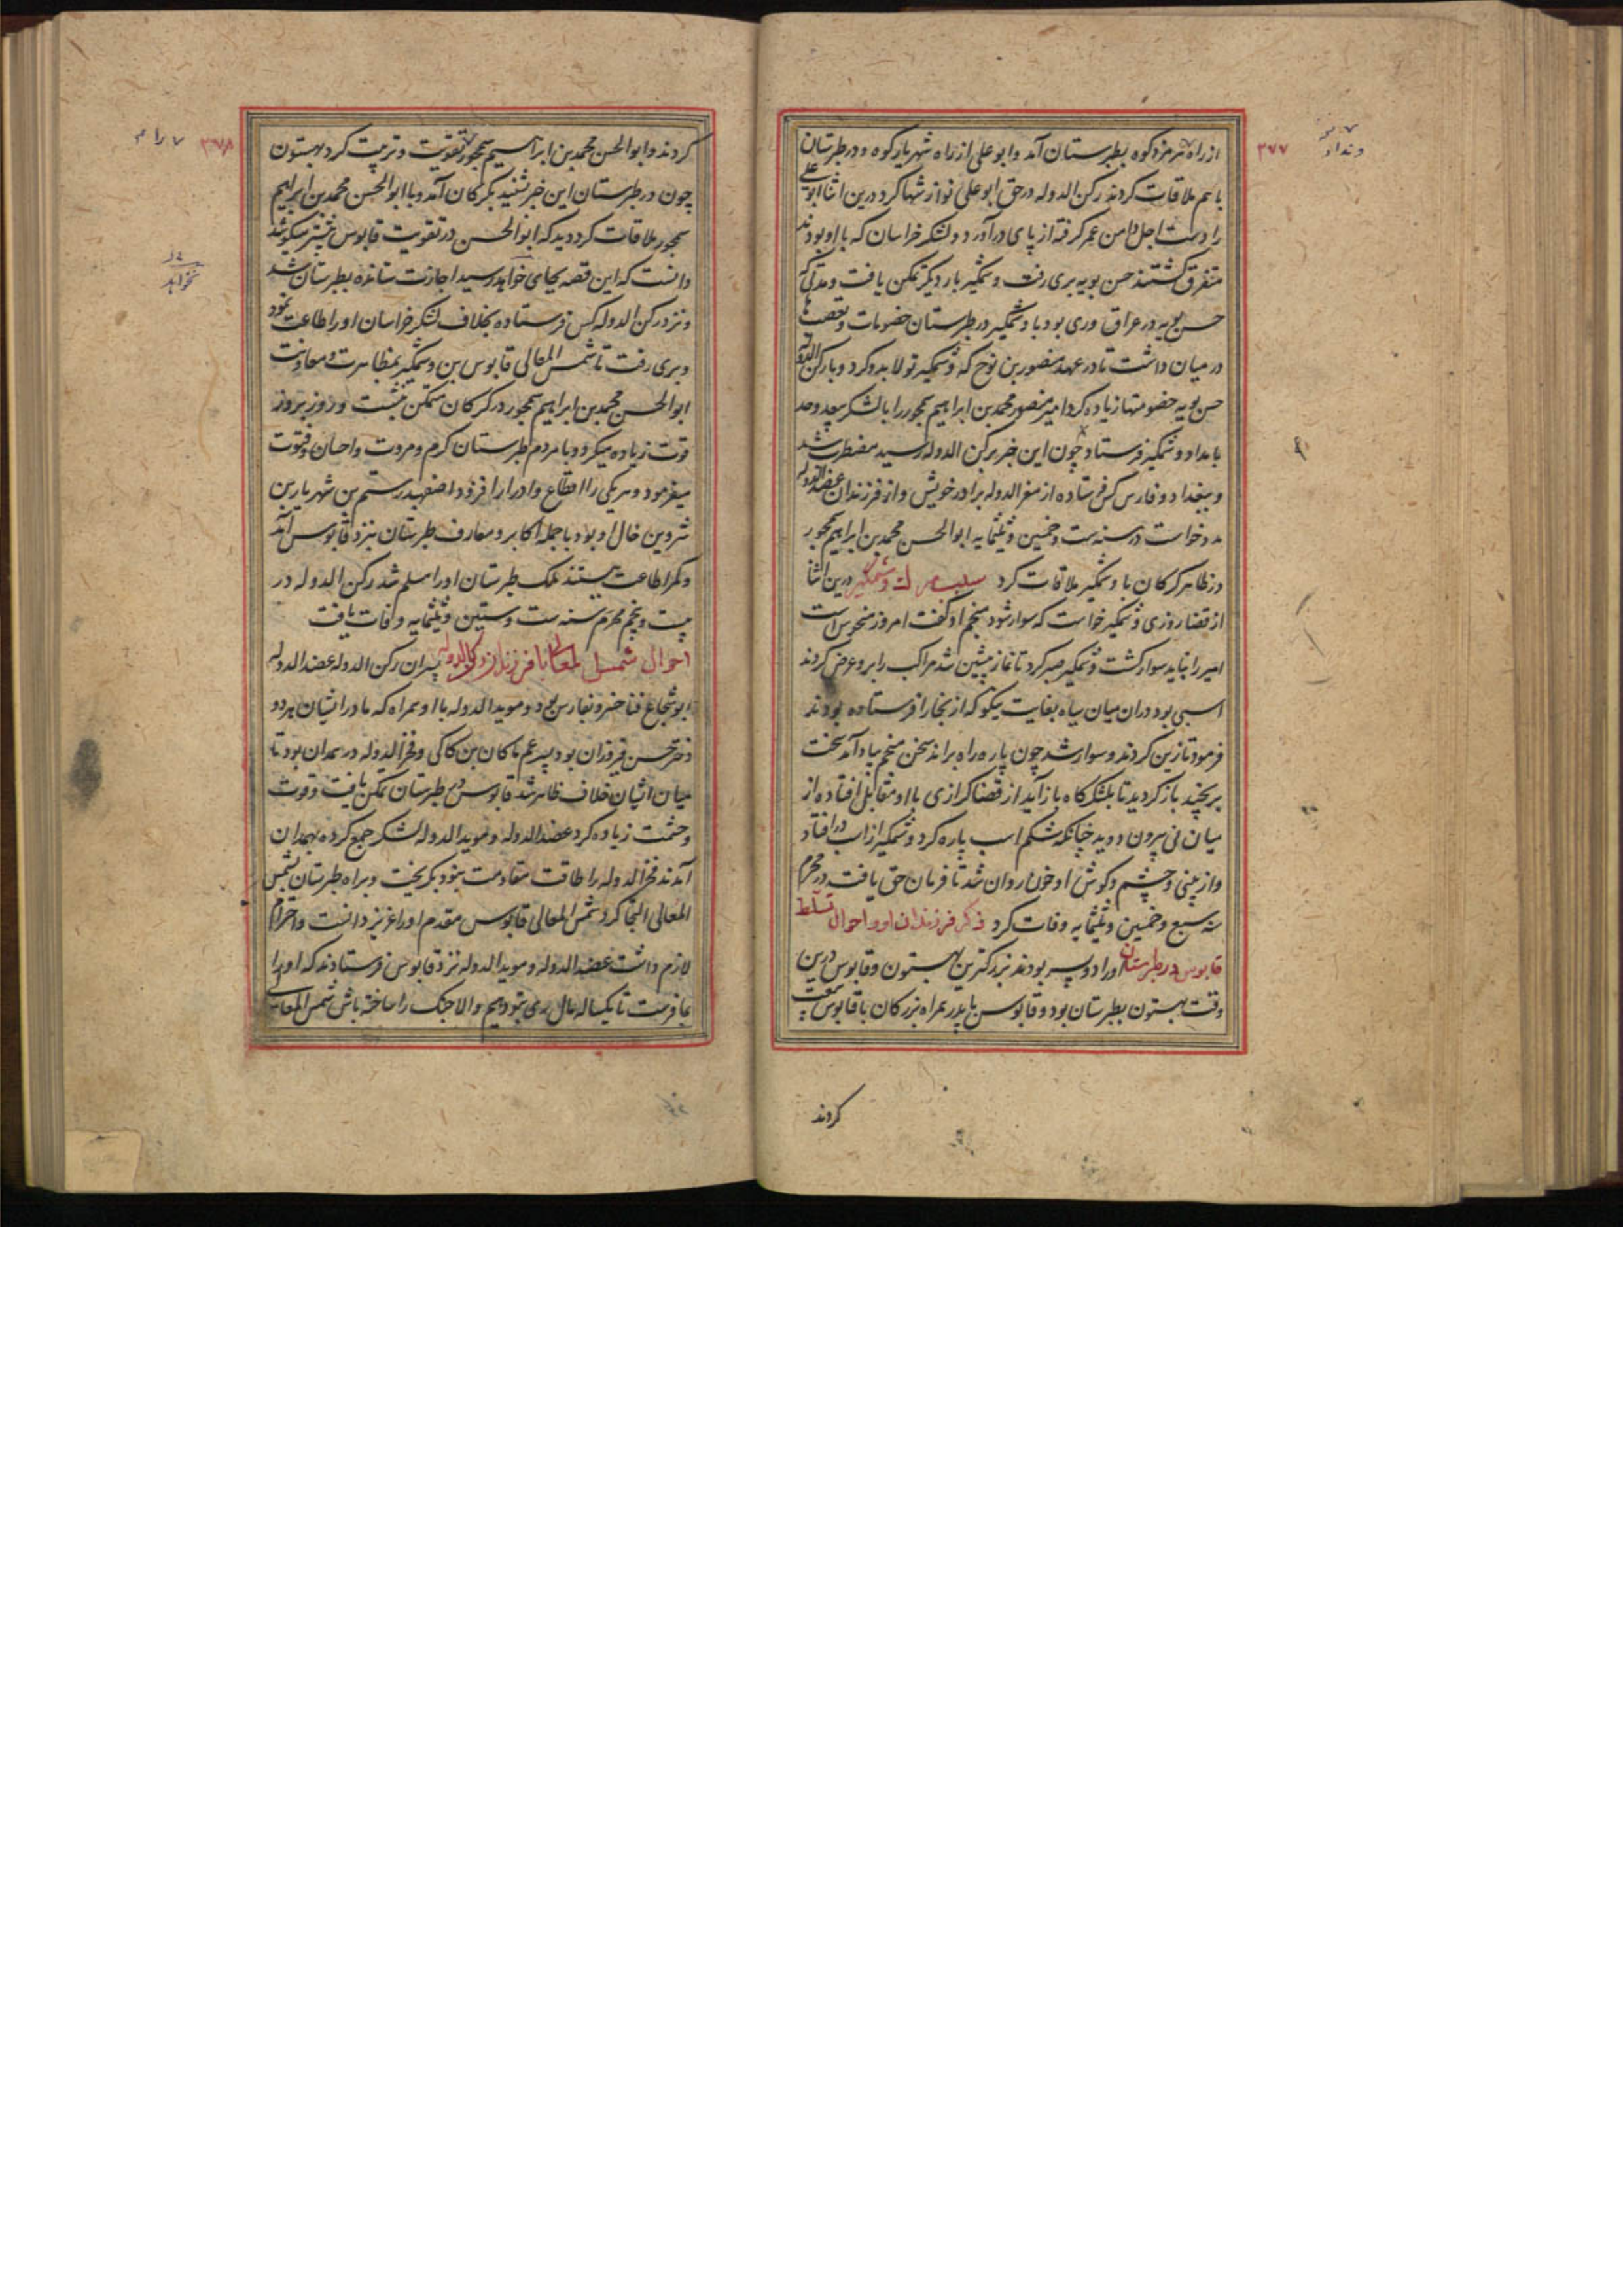 از راه هرمزدکوه بطبرستان آمد و ابو علی از راه شهریارکوه و در طبرستان
باهم ملاقات کردند رکن الدوله در حق ابو علی نوازشها کرد درین اثنا ابو علی
را دست اجل دامن عمر گرفته از پای درآورد و لشکر خراسان که با او بودند
متفرق گشتند حسن بویه بری رفت و وشمگیر بار دیگر تمکن یافت و مدتی که
حسن بویه در عراق و ری بود با وشمگیر در طبرستان خصومات و تعصبها
در میان داشت تا در عهد منصور بن نوح که وشمگیر تولا بدو کرد و با رکن الدوله
حسن بویه خصومتها زیاده کرد امیر منصور محمد بن ابراهیم سمجور را با لشکر بیعد وحد
بامداد وشمگیر فرستاد چون این خبر برکن الدوله رسید مضطرب شد
و ببغداد و فارس کس فرستاده از معز الدوله برادر خویش و از فرزندان عضد الدوله
مدد خواست در سنه ست و خمسین و ثلثمایه ابو الحسن محمد بن ابراهیم سمجور
در ظاهر کرکان با وشمگیر ملاقات کرد سبب هلاکت وشمگیر درین اثنا
از قضا روزی وشمگیر خواست که سوار شود منجم او گفت امروز منحوس است
امیر را نباید سوار گشت وشمگیر صبر کرد تا نماز پیشین شد مراکب را برو عرض کردند
اسبی بود دران میان سیاه بغایت نیکو که از بخارا فرستاده بودند
فرمود تا زین کردند و سوار شد چون پاره راه براند سخن منجم بیاد آمد سخت
برنجید باز گردید تا بلشکرگاه باز آید از قضا کرازی با او مقابل افتاده از
میان نی بیرون دوید چنانکه شکم اسب پاره کرد وشمگیر از اسب درافتاد
و از بینی و چشم و گوش او خون روان شد تا فرمان حق یافت در محرم
سنه سبع و خمسین و ثلثمایه وفات کرد ذکر فرزندان او و احوال تسلط
قابوس در طبرستان او را دو پسر بودند بزرگترین بهستون و قابوس درین
وقت بهستون بطبرستان بود و قابوس با پدر همراه بزرگان با قابوس بیعت
کردند
۳۷۷
ونداد
کردند و ابو الحسن محمد بن ابراهیم سمجور تقویت و تربیت کرد بهستون
چون در طبرستان این خبر شنید بکرکان آمد و با ابو الحسن محمد بن ابراهیم
سمجور ملاقات کرد دید که ابو الحسن در تقویت قابوس بیشتر میکوشد
دانست که این قصه بجای خواهد رسید اجازت ستانده بطبرستان شد
و نزد رکن الدوله کس فرستاده بخلاف لشکر خراسان او را طاعت نمود
و بری رفت تا شمس المعالی قابوس بن وشمگیر بمظاهرت و معاونت
ابو الحسن محمد بن ابراهیم سمجور در کرکان متمکن بنشست و روز بروز
قوت زیاده میکرد و با مردم طبرستان کرم و مروت و احسان و فتوت
میفرمود و هریکی را اقطاع و ادرار افزود اصفهبد رستم بن شهریار بن
شروین خال او بود با جمله اکابر و معارف طبرستان نزد قابوس آمد
و کمر اطاعت بستند ملک طبرستان او را مسلم شد رکن الدوله در
بیست و پنجم محرم سنه ست و ستین و ثلثمایه وفات یافت
احوال شمس المعالی با فرزندان رکن الدوله پسران رکن الدوله عضد الدوله
ابو شجاع فناخسرو بفارس بود و موید الدوله با او همراه که مادر ایشان هر دو
دختر حسن فیروزان بود پسر عم ماکان بن کاکی و فخر الدوله در همدان بود تا
میان ایشان خلاف ظاهر شد قابوس در طبرستان تمکن یافت و قوت
و حشمت زیاده کرد عضد الدوله و موید الدوله لشکر جمع کرده بهمدان
آمدند فخر الدوله را طاقت مقاومت نبود بگریخت و براه طبرستان بشمس
المعالی التجا کرد شمس المعالی قابوس مقدم او را عزیز دانست و احترام
لازم داشت عضد الدوله و موید الدوله نزد قابوس فرستادند که او را
بما فرست تا یکساله مال ری بتو دهیم والا جنگ را ساخته باش شمس المعالی
۳۷۸
نخواهد